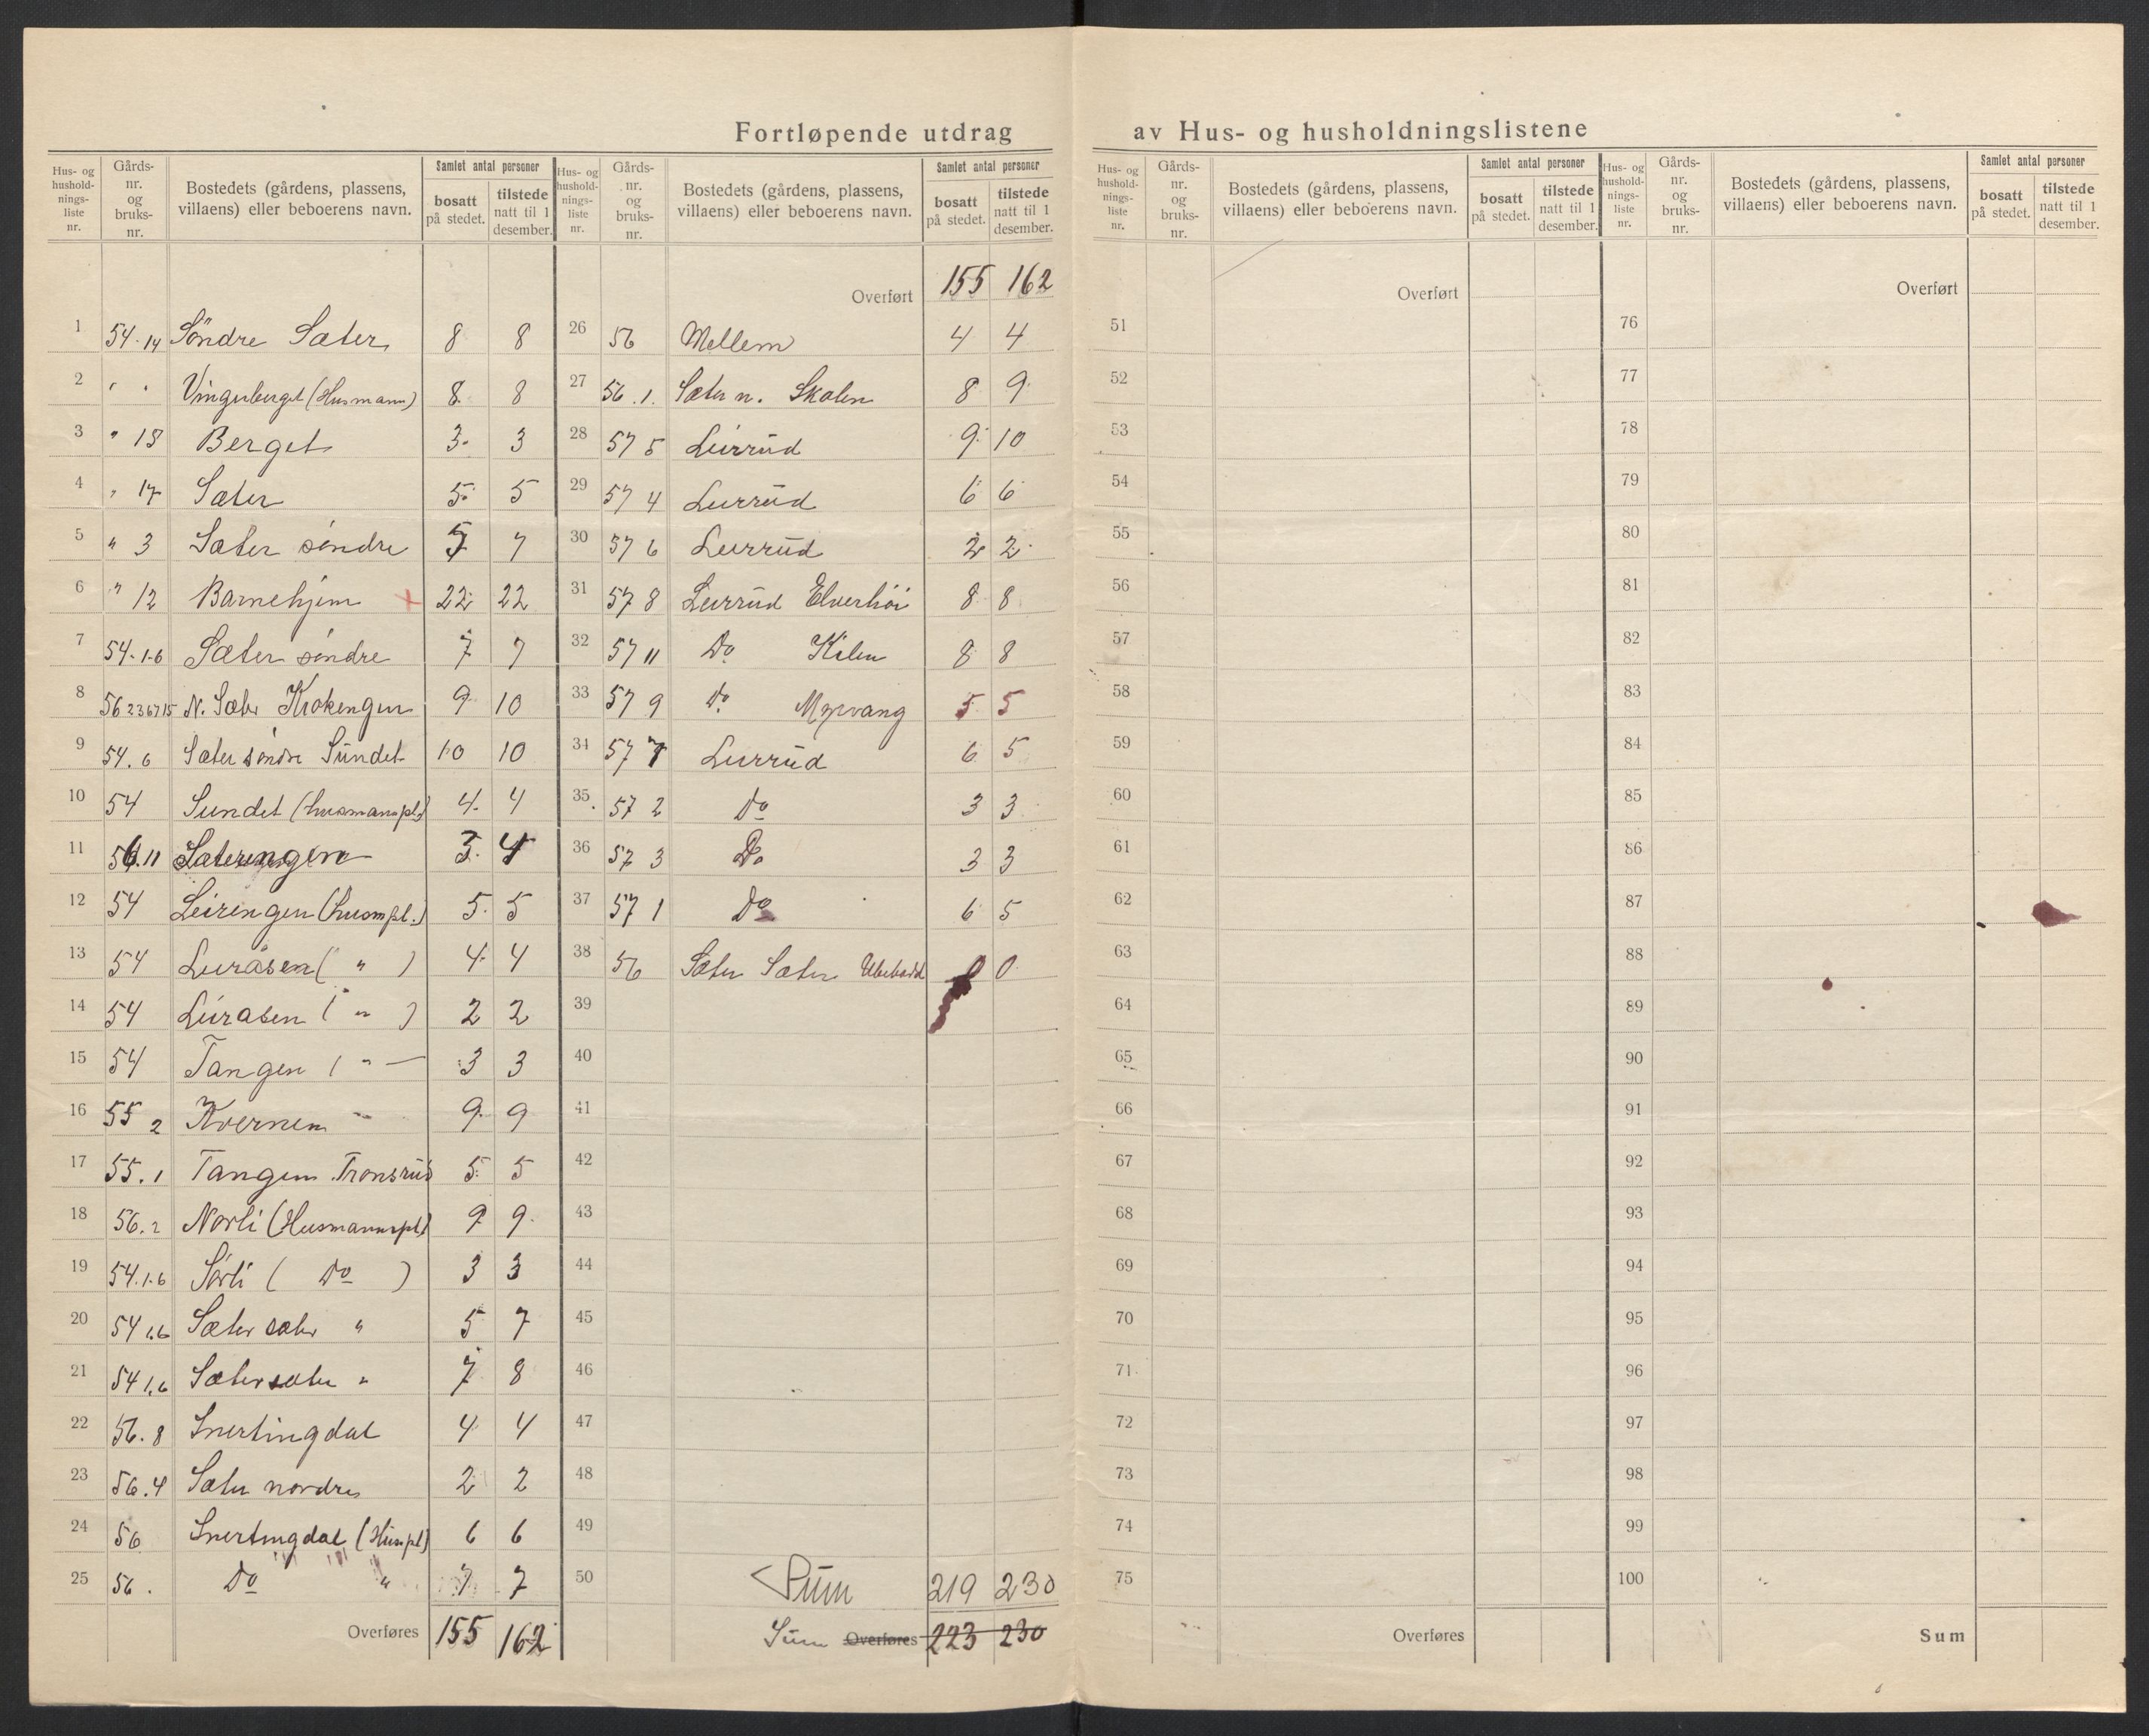 Fortløpende utdrag av Hus- og husholdningslistene
Hus- og husholdnings-liste nr. Gårds-nr. og bruks-nr. Bostedets (gårdens, plassens, villaens) eller beboerens navn. Samlet antal personer bosatt på stedet. tilstede natt til 1 desember.
1 54.14 Söndre Sæter 8 8
2 " " Vinguberget (Husmann) 8 8
3 " 18 Berget 3 3
4 " 17 Sæter 5 5
5 " 3 Sæter søndre 7 7
6 " 12 Barnehjem + 22 22
7 54.1.6 Sæter søndre 7 7
8 56 2 3 6 7 15 N. Sæter Krokengen 9 10
9 54.6 Sæter søndre Sundet 10 10
10 54 Sundet (husmanspl.) 4 4
11 56.11 Sæterengen 3 4
12 54 Leirengen (husmpl.) 5 5
13 54 Luråsen ( " ) 4 4
14 54 Luråsen ( " ) 2 2
15 54 Tangen ( " — 3 3
16 55 2 Kvernen " 9 9
17 55.1 Tangen Tronsrud 5 5
18 56.2 Norli (Husmannspl.) 9 9
19 54.1.6 Sørli ( Do ) 3 3
20 54 1.6 Sæter sæter " 5 7
21 54 1.6 Sæter sæter " 7 8
22 56.8 Snertingdal 4 4
23 56.4 Sæter nordre 2 2
24 56 Snertingdal (Husmpl) 6 6
25 56. Do " 7 7
Overføres 155 162
Hus- og husholdnings-liste nr. Gårds-nr. og bruks-nr. Bostedets (gårdens, plassens, villaens) eller beboerens navn. Samlet antal personer bosatt på stedet. tilstede natt til 1 desember.
Overført 155 162
26 56 Mellem 4 4
27 56.1. Sæter n. Skolen 8 9
28 57 5 Leirrud 9 10
29 57 4 Leirrud 6 6
30 57 6 Leirrud 2 2
31 57 8 Leirrud Elverhöi 8 8
32 57 11 Do Kilen 8 8
33 57 9 Do Myrvang 5 5
34 57 7 Leirrud 6 5
35 57 2 Do 3 3
36 57 3 Do 3 3
37 57 1 Do 6 5
38 56 Sæter Sæter Ubebodd 0 0
39
40
41
42
43
44
45
46
47
48
49
50 Sum 219 230
Sum Overføres 223 230
Hus- og husholdnings-liste nr. Gårds-nr. og bruks-nr. Bostedets (gårdens, plassens, villaens) eller beboerens navn. Samlet antal personer bosatt på stedet. tilstede natt til 1 desember.
Overført
51
52
53
54
55
56
57
58
59
60
61
62
63
64
65
66
67
68
69
70
71
72
73
74
75
Overføres
Hus- og husholdnings-liste nr. Gårds-nr. og bruks-nr. Bostedets (gårdens, plassens, villaens) eller beboerens navn. Samlet antal personer bosatt på stedet. tilstede natt til 1 desember.
Overført
76
77
78
79
80
81
82
83
84
85
86
87
88
89
90
91
92
93
94
95
96
97
98
99
100
Sum